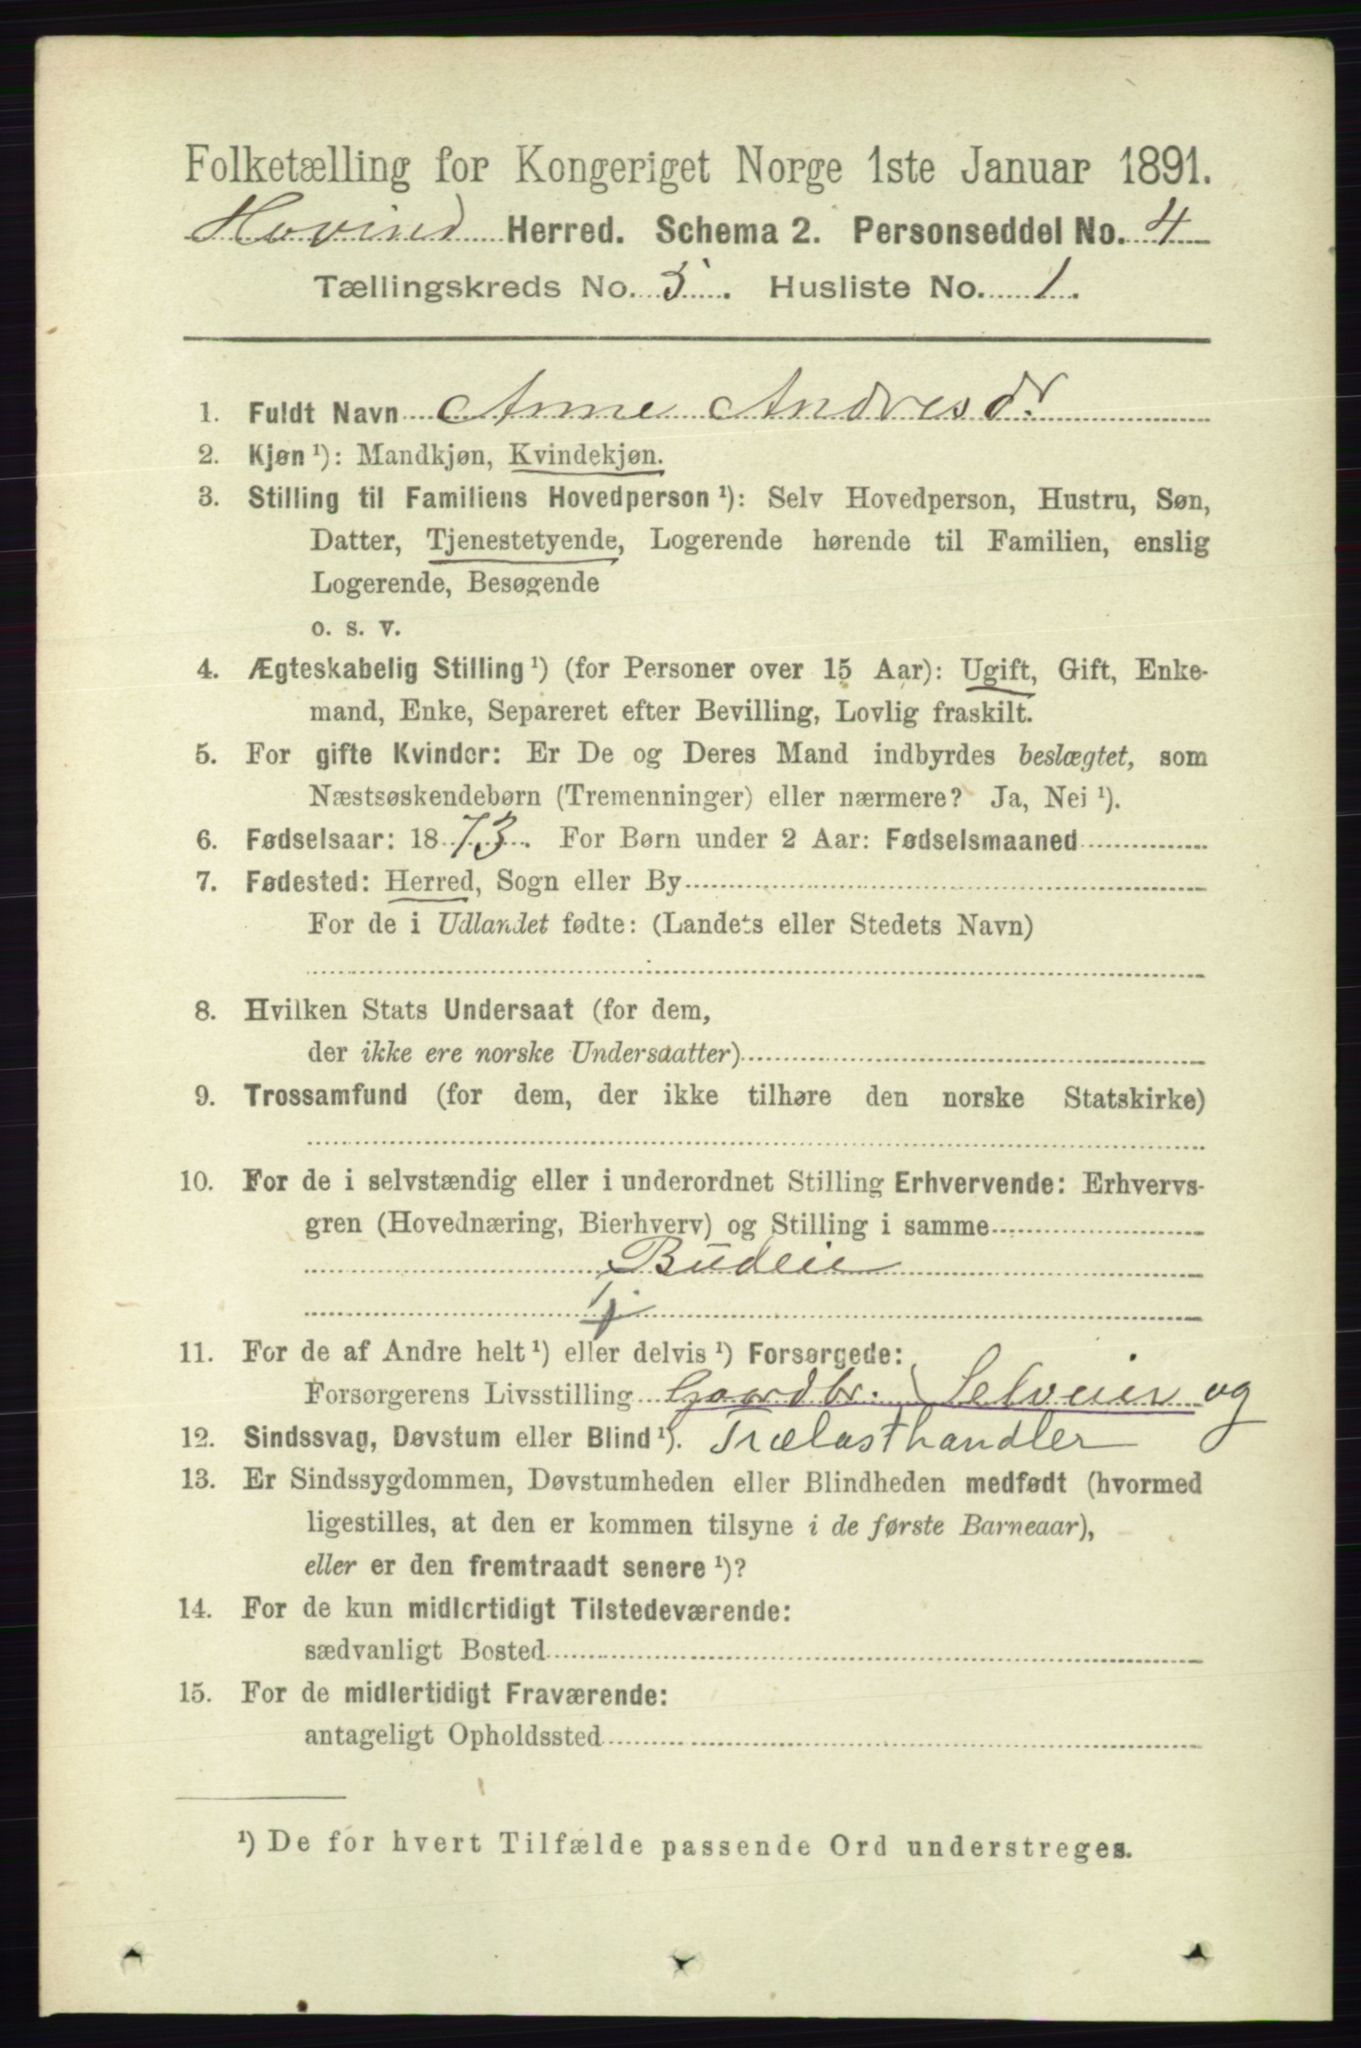 Folketælling for Kongeriget Norge 1ste Januar 1891.
Hovind Herred. Schema 2. Personseddel No. 4
Tællingskreds No. 5. Husliste No. 1.
1. Fuldt Navn Anne Andresdr
2. Kjøn ¹): Mandkjøn, Kvindekjøn.
3. Stilling til Familiens Hovedperson ¹): Selv Hovedperson, Hustru, Søn,
Datter, Tjenestetyende, Logerende hørende til Familien, enslig
Logerende, Besøgende
o. s. v.
4. Ægteskabelig Stilling ¹) (for Personer over 15 Aar): Ugift, Gift, Enke-
mand, Enke, Separeret efter Bevilling, Lovlig fraskilt.
5. For gifte Kvinder: Er De og Deres Mand indbyrdes beslægtet, som
Næstsøskendebørn (Tremenninger) eller nærmere? Ja, Nei ¹).
6. Fødselsaar: 1873. For Børn under 2 Aar: Fødselsmaaned
7. Fødested: Herred, Sogn eller By
For de i Udlandet fødte: (Landets eller Stedets Navn)
8. Hvilken Stats Undersaat (for dem,
der ikke ere norske Undersaatter)
9. Trossamfund (for dem, der ikke tilhøre den norske Statskirke)
10. For de i selvstændig eller i underordnet Stilling Erhvervende: Erhvervs-
gren (Hovednæring, Bierhverv) og Stilling i samme
Budeie
11. For de af Andre helt ¹) eller delvis ¹) Forsørgede:
Forsørgerens Livsstilling Gaardbr. Selveier og
12. Sindssvag, Døvstum eller Blind ¹). Trælasthandler
13. Er Sindssygdommen, Døvstumheden eller Blindheden medfødt (hvormed
ligestilles, at den er kommen tilsyne i de første Barneaar),
eller er den fremtraadt senere ¹)?
14. For de kun midlertidigt Tilstedeværende:
sædvanligt Bosted
15. For de midlertidigt Fraværende:
antageligt Opholdssted
¹) De for hvert Tilfælde passende Ord understreges.